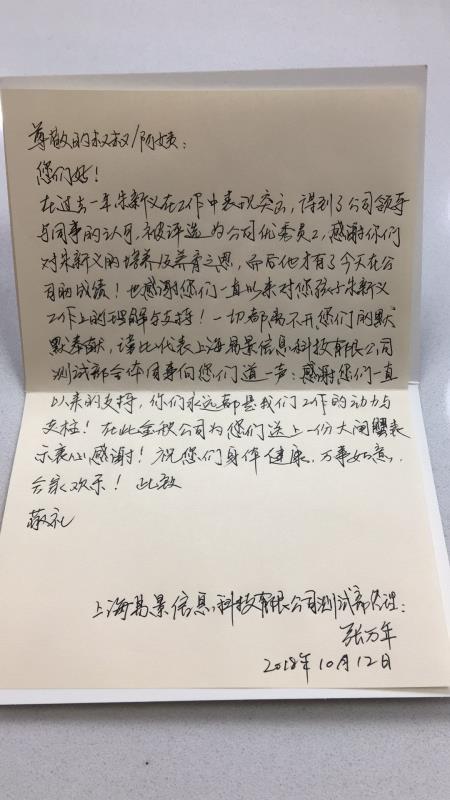 尊敬的叔叔/阿姨：
您们好！
在过去一年朱新义在工作中表现突出，得到了公司领导
与同事的认可，被评选为公司优秀员工，感谢你们
对朱新义的培养及养育之恩，而后他才有了今天在公
司的成绩！也感谢您们一直以来对您孩子朱新义
工作上的理解与支持！一切都离不开您们的默
默奉献，谨此代表上海易景信息科技有限公司
测试部全体同事向您们道一声：感谢您们一直
以来的支持，你们永远都是我们工作的动力与
支柱！在此金秋公司为您们送上一份大闸蟹表
示衷心感谢！祝您们身体健康，万事如意，
合家欢乐！此致
敬礼
上海易景信息科技有限公司测试部经理：
张万年
2018年10月12日